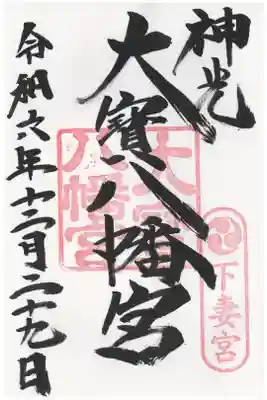 神光
大寶八幡宮
下妻宮
令和六年十二月二十九日